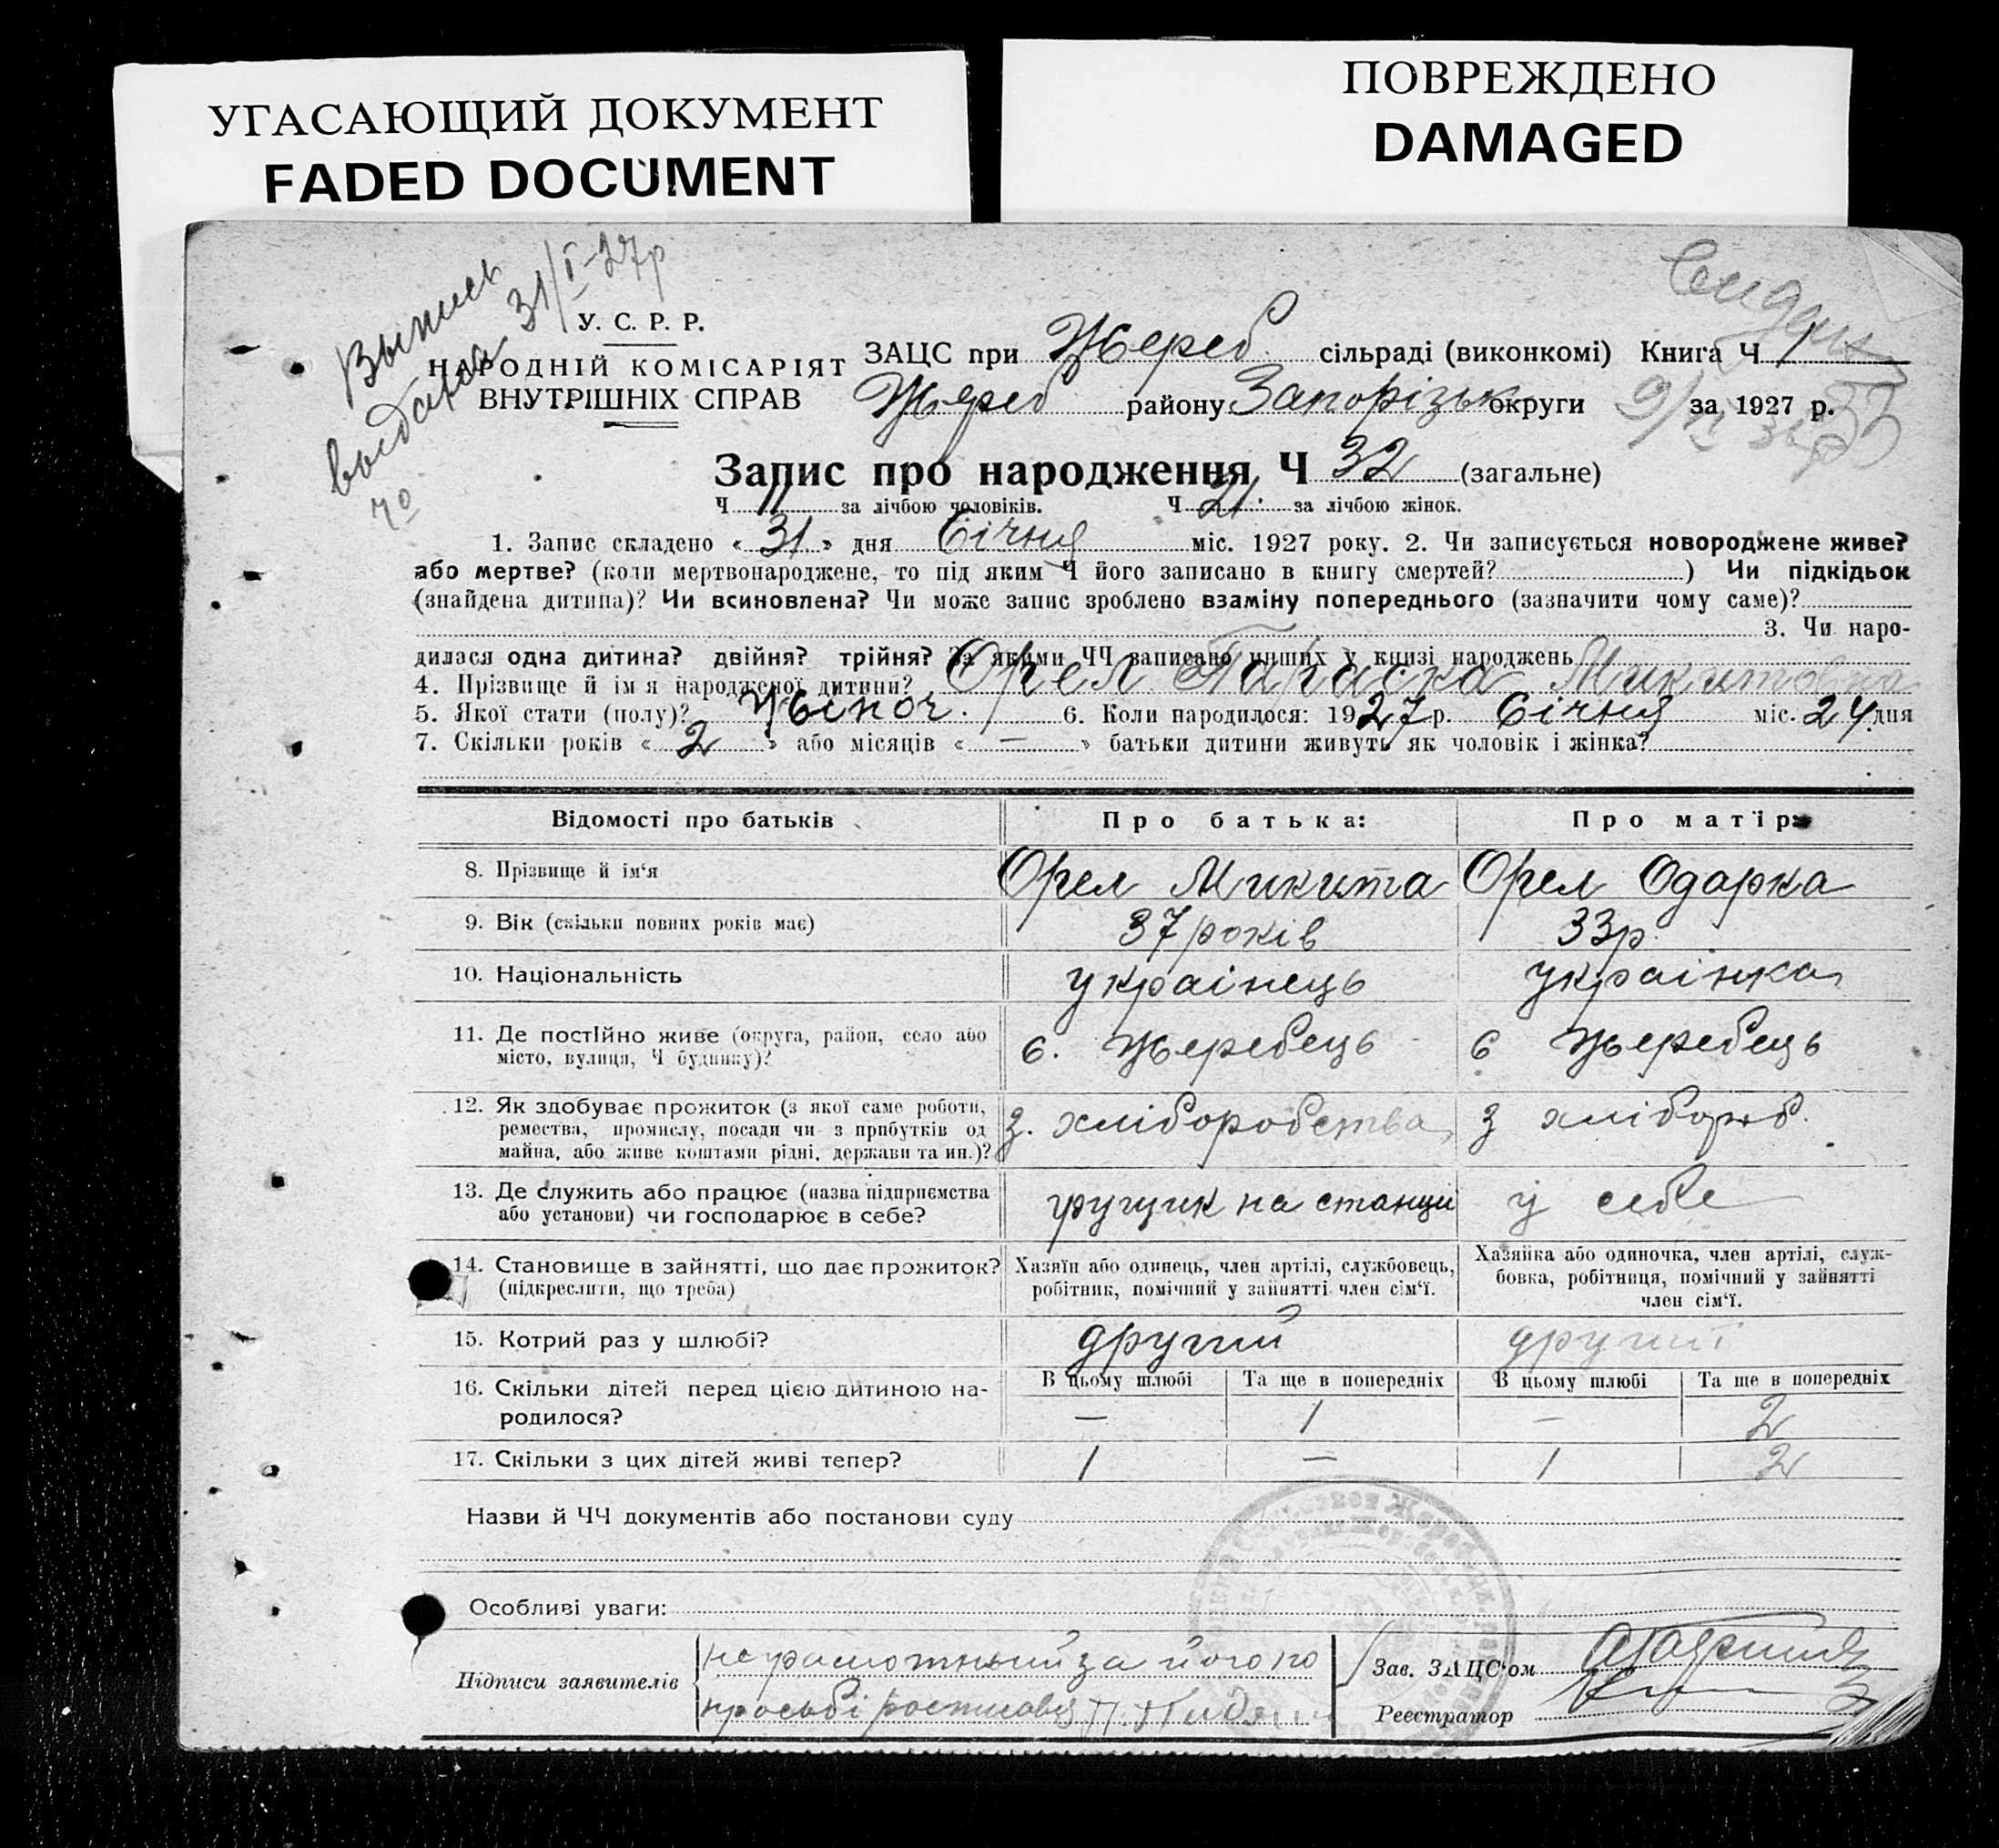 УГАСАЮЩИЙ ДОКУМЕНТ
FADED DOCUMENT
ПОВРЕЖДЕНО
DAMAGED
Выпись
выдана 31/I-27р
У. С. Р. Р.
НАРОДНІЙ КОМІСАРІЯТ
ВНУТРІШНІХ СПРАВ
ЗАЦС при Жереб. сільраді (виконкомі) Книга Ч 1
Жереб району Запорізьк округи за 1927 р.
Запис про народження Ч 32 (загальне)
Ч 11 за лічбою чоловіків. Ч 21. за лічбою жінок.
1. Запис складено « 31 » дня Січня міс. 1927 року. 2. Чи записується новороджене живе?
або мертве? (коли мертвонароджене, то під яким Ч його записано в книгу смертей? ) Чи підкідьок
(знайдена дитина)? Чи всиновлена? Чи може запис зроблено взаміну попереднього (зазначити чому саме)?
3. Чи наро-
дилася одна дитина? двійня? трійня? За якими ЧЧ записано инших у книзі народжень
4. Прізвище й ім'я народженої дитини? Орел Параска Микитовна
5. Якої стати (полу)? Жіноч. 6. Коли народилося: 1927 р. Січня міс. 24 дня
7. Скільки років « 2 » або місяців « — » батьки дитини живуть як чоловік і жінка?
Відомості про батьків Про батька: Про матір:
8. Прізвище й ім'я Орел Микита Орел Одарка
9. Вік (скільки повних років має) 37 років 33р.
10. Національність українець українка
11. Де постійно живе (округа, район, село або
місто, вулиця, Ч будинку)? с. Жеребець с Жеребець
12. Як здобуває прожиток (з якої саме роботи,
ремества, промислу, посади чи з прибутків од
майна, або живе коштами рідні, держави та ин.)? З. хліборобства З хлібороб.
13. Де служить або працює (назва підприємства
або установи) чи господарює в себе? грущик на станции у себе
14. Становище в зайнятті, що дає прожиток?
(підкреслити, що треба)
Хазяїн або одинець, член артілі, службовець,
робітник, помічний у зайнятті член сім'ї.
Хазяйка або одиночка, член артілі, служ-
бовка, робітниця, помічний у зайнятті
член сім'ї.
15. Котрий раз у шлюбі? другий другий
В цьому шлюбі Та ще в попередніх В цьому шлюбі Та ще в попередніх
16. Скільки дітей перед цією дитиною на-
родилося? — 1 — 2
17. Скільки з цих дітей живі тепер? 1 — 1 2
Назви й ЧЧ документів або постанови суду
Особливі уваги:
Підписи заявителів
неграмотный за його по
просьбі росписався П.
Зав. ЗАЦС'ом
Реєстратор